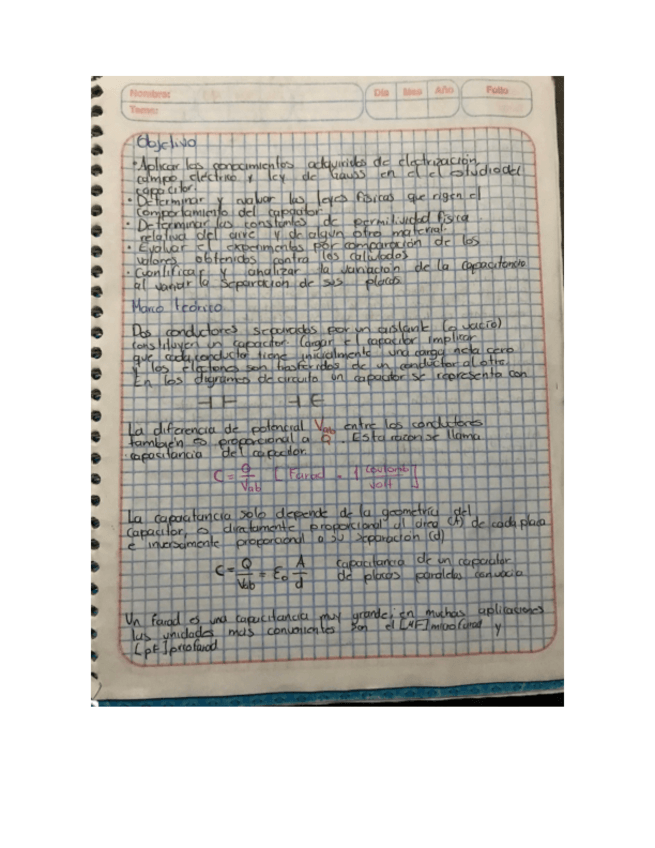 Nombre:
Día Mes Año Folio
Tema:
Objetivo
• Aplicar los conocimientos adquiridos de electrización,
campo eléctrico y ley de Gauss en el el estudio del
capacitor.
• Determinar y evaluar las leyes físicas que rigen el
comportamiento del capacitor.
• Determinar las constantes de permitividad física
relativa del aire y de algún otro material.
• Evaluar el experimentos por comparación de los
valores obtenidos contra los calculados
• Cuantificar y analizar la variación de la capacitancia
al variar la separación de sus placas
Marco teórico
Dos conductores separados por un aislante (o vacío)
constituyen un capacitor. Cargar el capacitor implicar
que cada conductor tiene inicialmente una carga neta cero
y los electrones son trasferidos de un conductor al otro.
En los digramas de circuito un capacitor se representa con
La diferencia de potencial Vab entre los conductores
también es proporcional a Q. Esta razon se llama
capasitancia del capacitor.
C = Q/Vab [Farad = { coulomb/volt }]
La capacitancia solo depende de la geometría del
capacitor, es directamente proporcional al área (A) de cada placa
e inversamente proporcional a su separación (d)
C = Q/Vab = ε₀ A/d capacitancia de un capacitor
de placas paralelas con vacío
Un Farad es una capacitancia muy grande, en muchas aplicaciones
las unidades mas convenientes son el [MF] microfarad y
[pF] picofarad